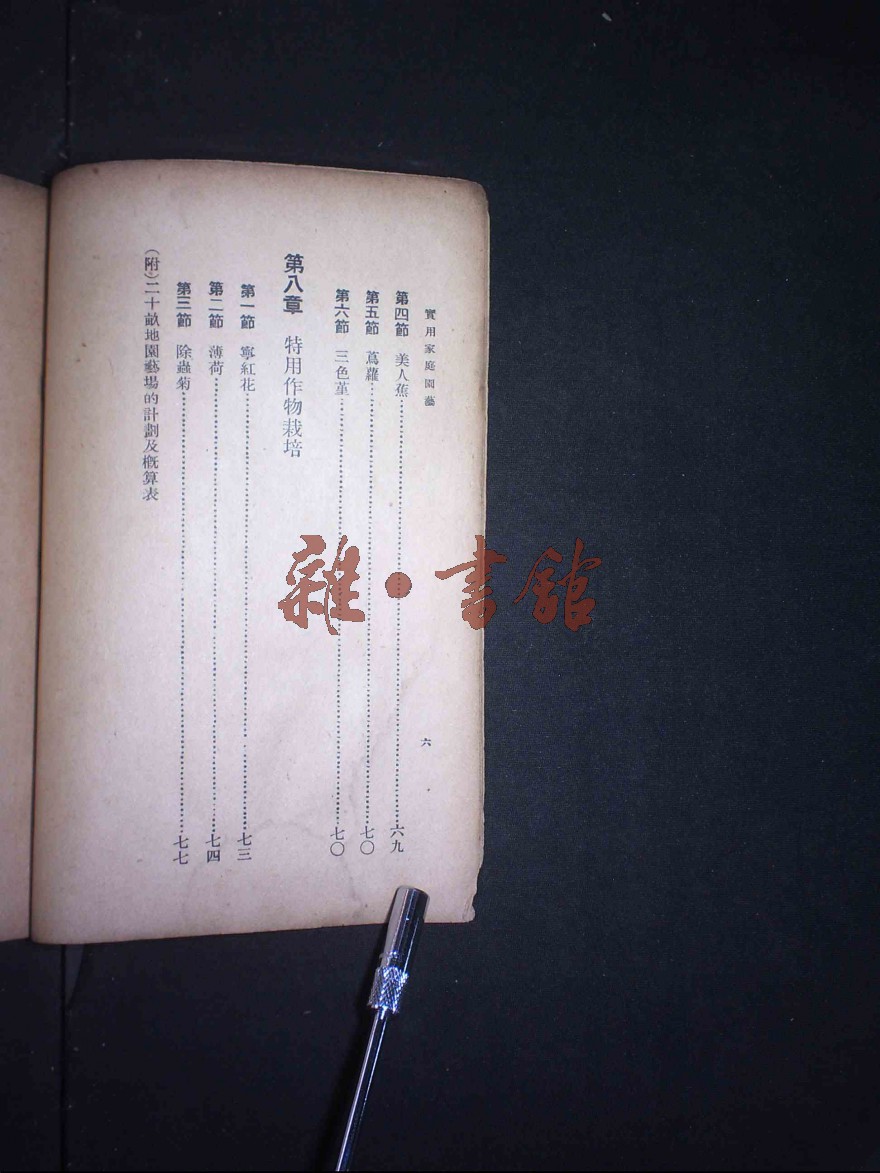 實用家庭園藝
六
第四節 美人蕉……六九
第五節 蔦蘿……七〇
第六節 三色堇……七〇
第八章 特用作物栽培
第一節 寧紅花……七三
第二節 薄荷……七四
第三節 除蟲菊……七七
(附)二十畝地園藝場的計劃及概算表
雜·書館